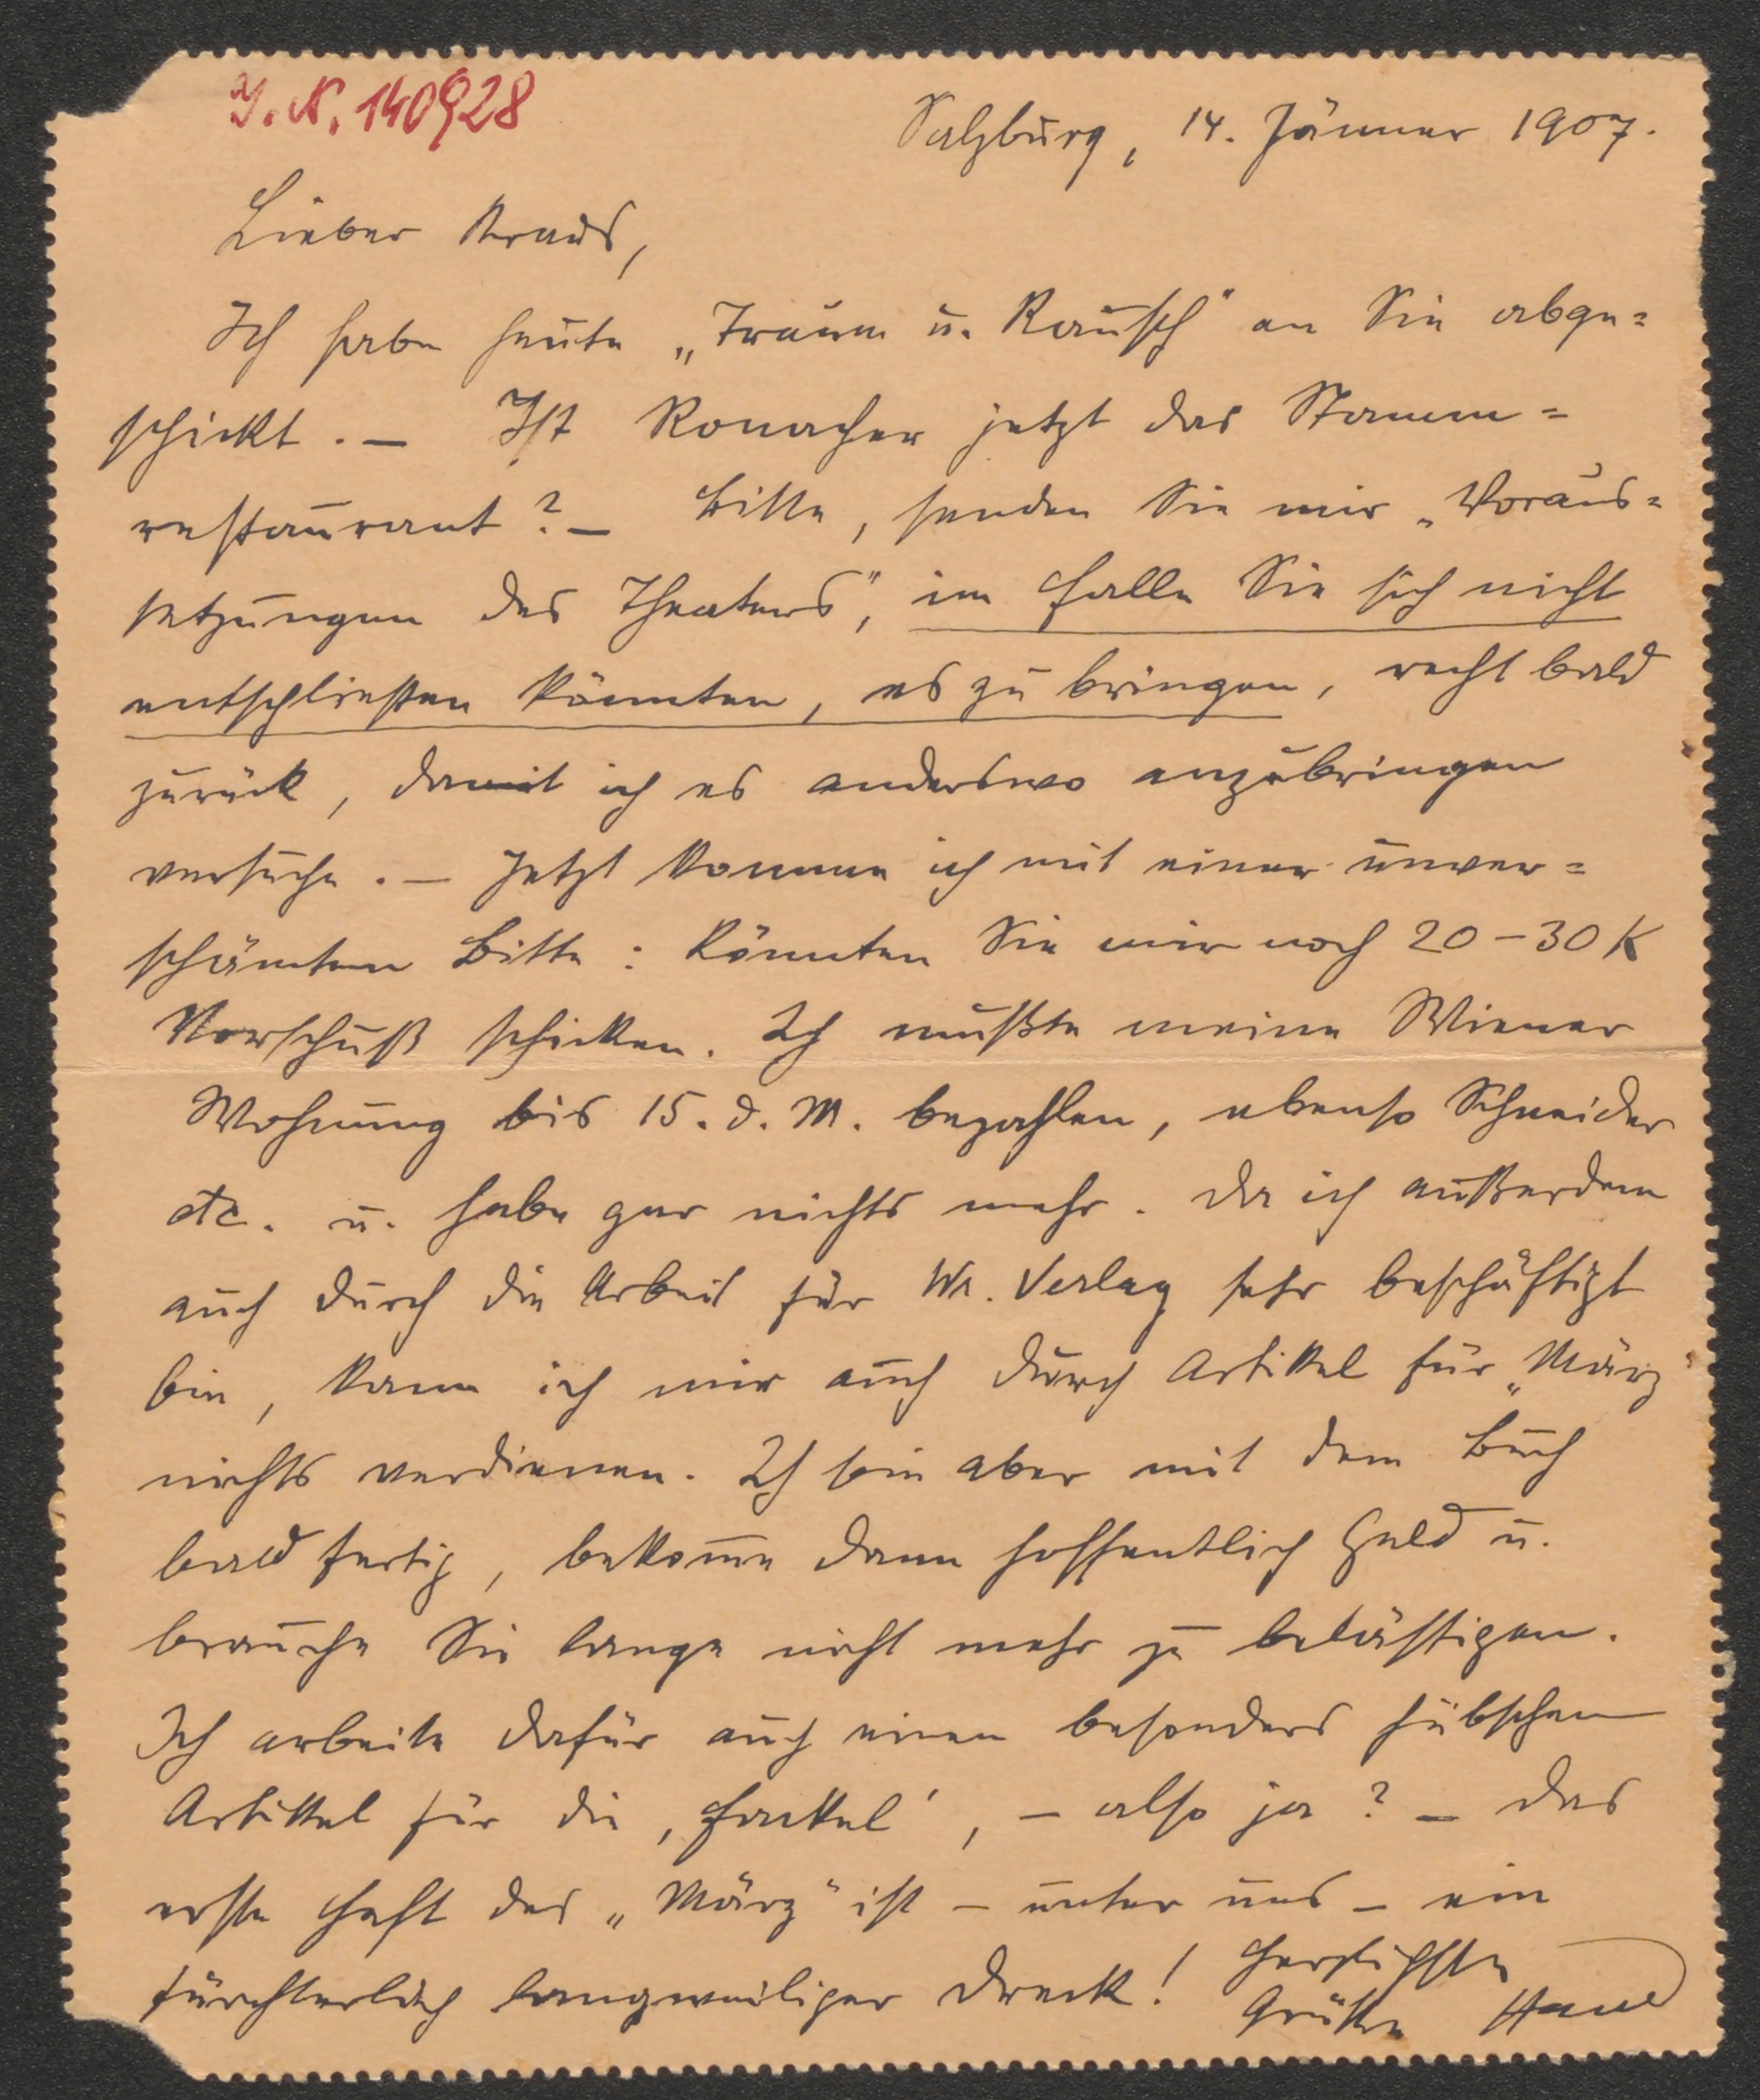 J. N. 140928
Salzburg, 14. Jänner 1907.
Lieber Kraus,
Ich habe heute „Traum u. Rausch" an Sie abge=
schickt. — Ist Ronacher jetzt das Stamm=
restaurant? — Bitte, senden Sie mir „Voraus=
setzungen des Theaters", im Falle Sie sich nicht
entschließen könnten, es zu bringen, recht bald
zurück, damit ich es anderswo anzubringen
versuche. — Jetzt komme ich mit einer unver=
schämten Bitte: Könnten Sie mir noch 20–30 K
Vorschuß schicken. Ich mußte meine Wiener
Wohnung bis 15. d. M. bezahlen, ebenso Schneider
etc. u. habe gar nichts mehr. Da ich außerdem
auch durch die Arbeit für Wr. Verlag sehr beschäftigt
bin, kann ich mir auch durch Artikel für „März"
nichts verdienen. Ich bin aber mit dem Buch
bald fertig, bekom̅e dann hoffentlich Geld u.
brauche Sie lange nicht mehr zu belästigen.
Ich arbeite dafür auch einen besonders hübschen
Artikel für die ‚Fackel', – also ja? – Das
erste Heft des „März" ist – unter uns – ein
fürchterlich langweiliger Dreck! Herzlichste
Grüße Hauer